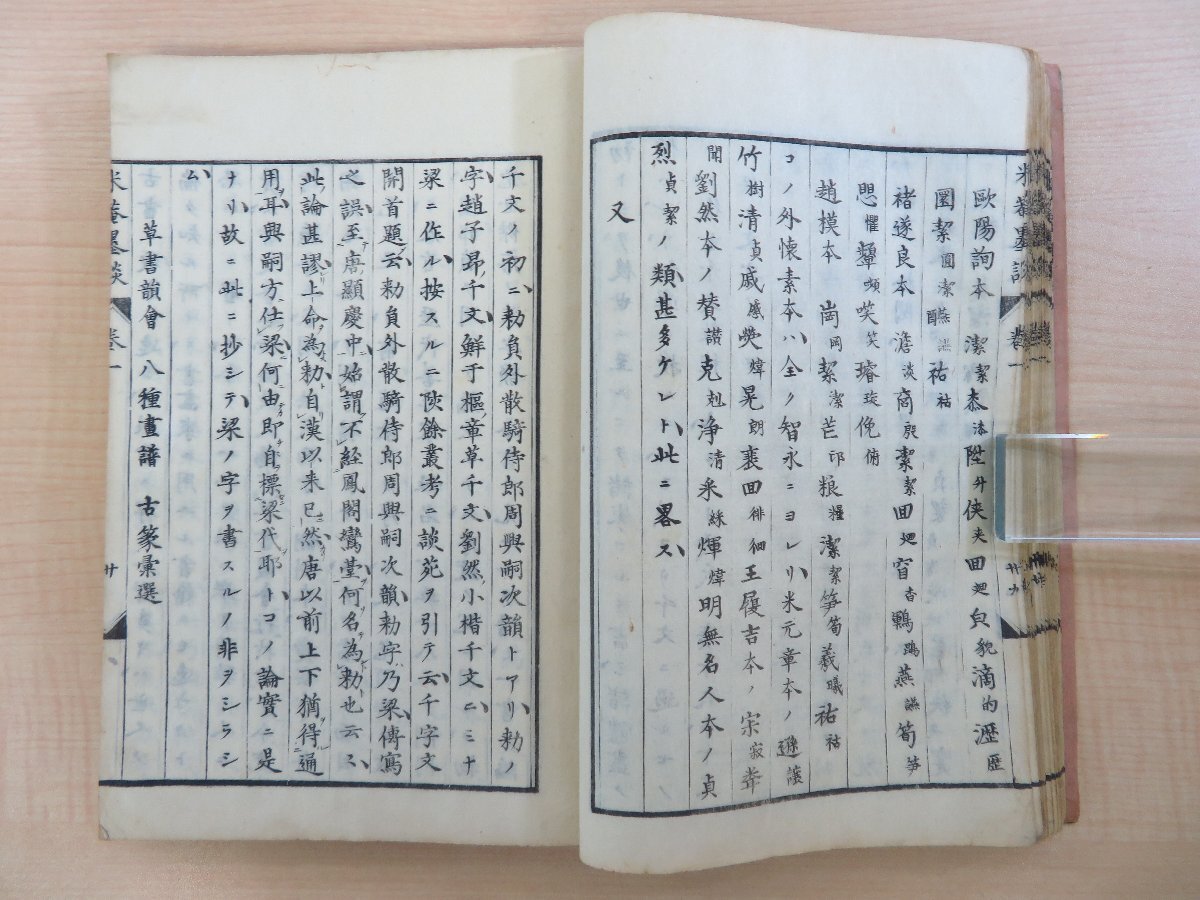 歐陽詢本 潔潔 桼漆 陞升 俠夹 回廻 皃貌 滴的 瀝歷
圜潔圓潔 醼讌 祐祜
褚遂良本 澹淡 商殷 絜潔 回廻 窅杳 鵾鶤 燕讌 筍笋
愳懼 顰嚬 唉笑 璿琁 俛俯
趙摸本 崗岡 絜潔 芒邙 粮糧 潔絜 笋筍 羲曦 祐祜
コノ外懷素本ハ全ク智永ニヨレリ米元章本ノ遜讓
竹樹清貞戚慼煐煒晃朗裵回徘徊王履吉本ノ宋寂
閒劉然本ノ賛讃克剋浄清釆綵煇煒明無名人本ノ貞
烈貞潔ノ類甚多ケレト此ニ畧ス
又
千文ノ初ニ勑負外散騎侍郎周興嗣次韻トアリ勑ノ
字趙子昻千文鮮于樞章草千文劉然小楷千文ニミナ
梁ニ作ル按スルニ陔餘叢考ニ談苑ヲ引テ云千字文
開首題云勑負外散騎侍郎周興嗣次韻勑字乃梁傳寫
之誤至唐顯慶中始謂不經鳳閣鸞臺何名為勑也云々
此論甚謬上命為勑自漢以来已然唐以前上下猶得通
用耳興嗣方仕梁何由即自標梁代耶トコノ論實ニ是
ナリ故ニ此ニ抄シテ梁ノ字ヲ書スルノ非ヲシラシ
ム
草書韻會 八種畫譜 古篆彙選
米菴墨談 卷一